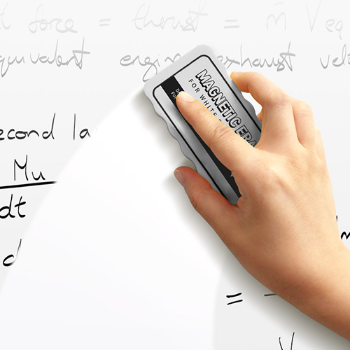 force = thrust = ṁ Veq
equivalent engine exhaust velo
MAGNETIC ERA
FOR WHITE
econd la
Mu
dt
d
=